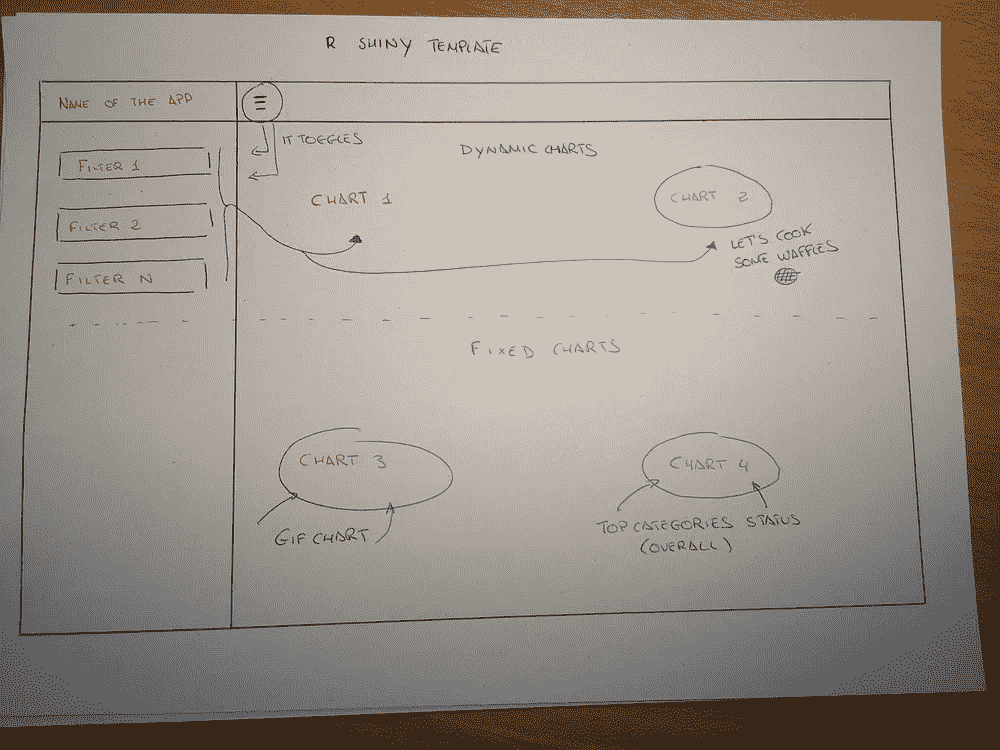 R SHINY TEMPLATE
NAME OF THE APP
IT TOGGLES
DYNAMIC CHARTS
FILTER 1
FILTER 2
FILTER N
CHART 1
CHART 2
LET'S COOK
SOME WAFFLES
FIXED CHARTS
CHART 3
GIF CHART
CHART 4
TOP CATEGORIES STATUS
(OVERALL)